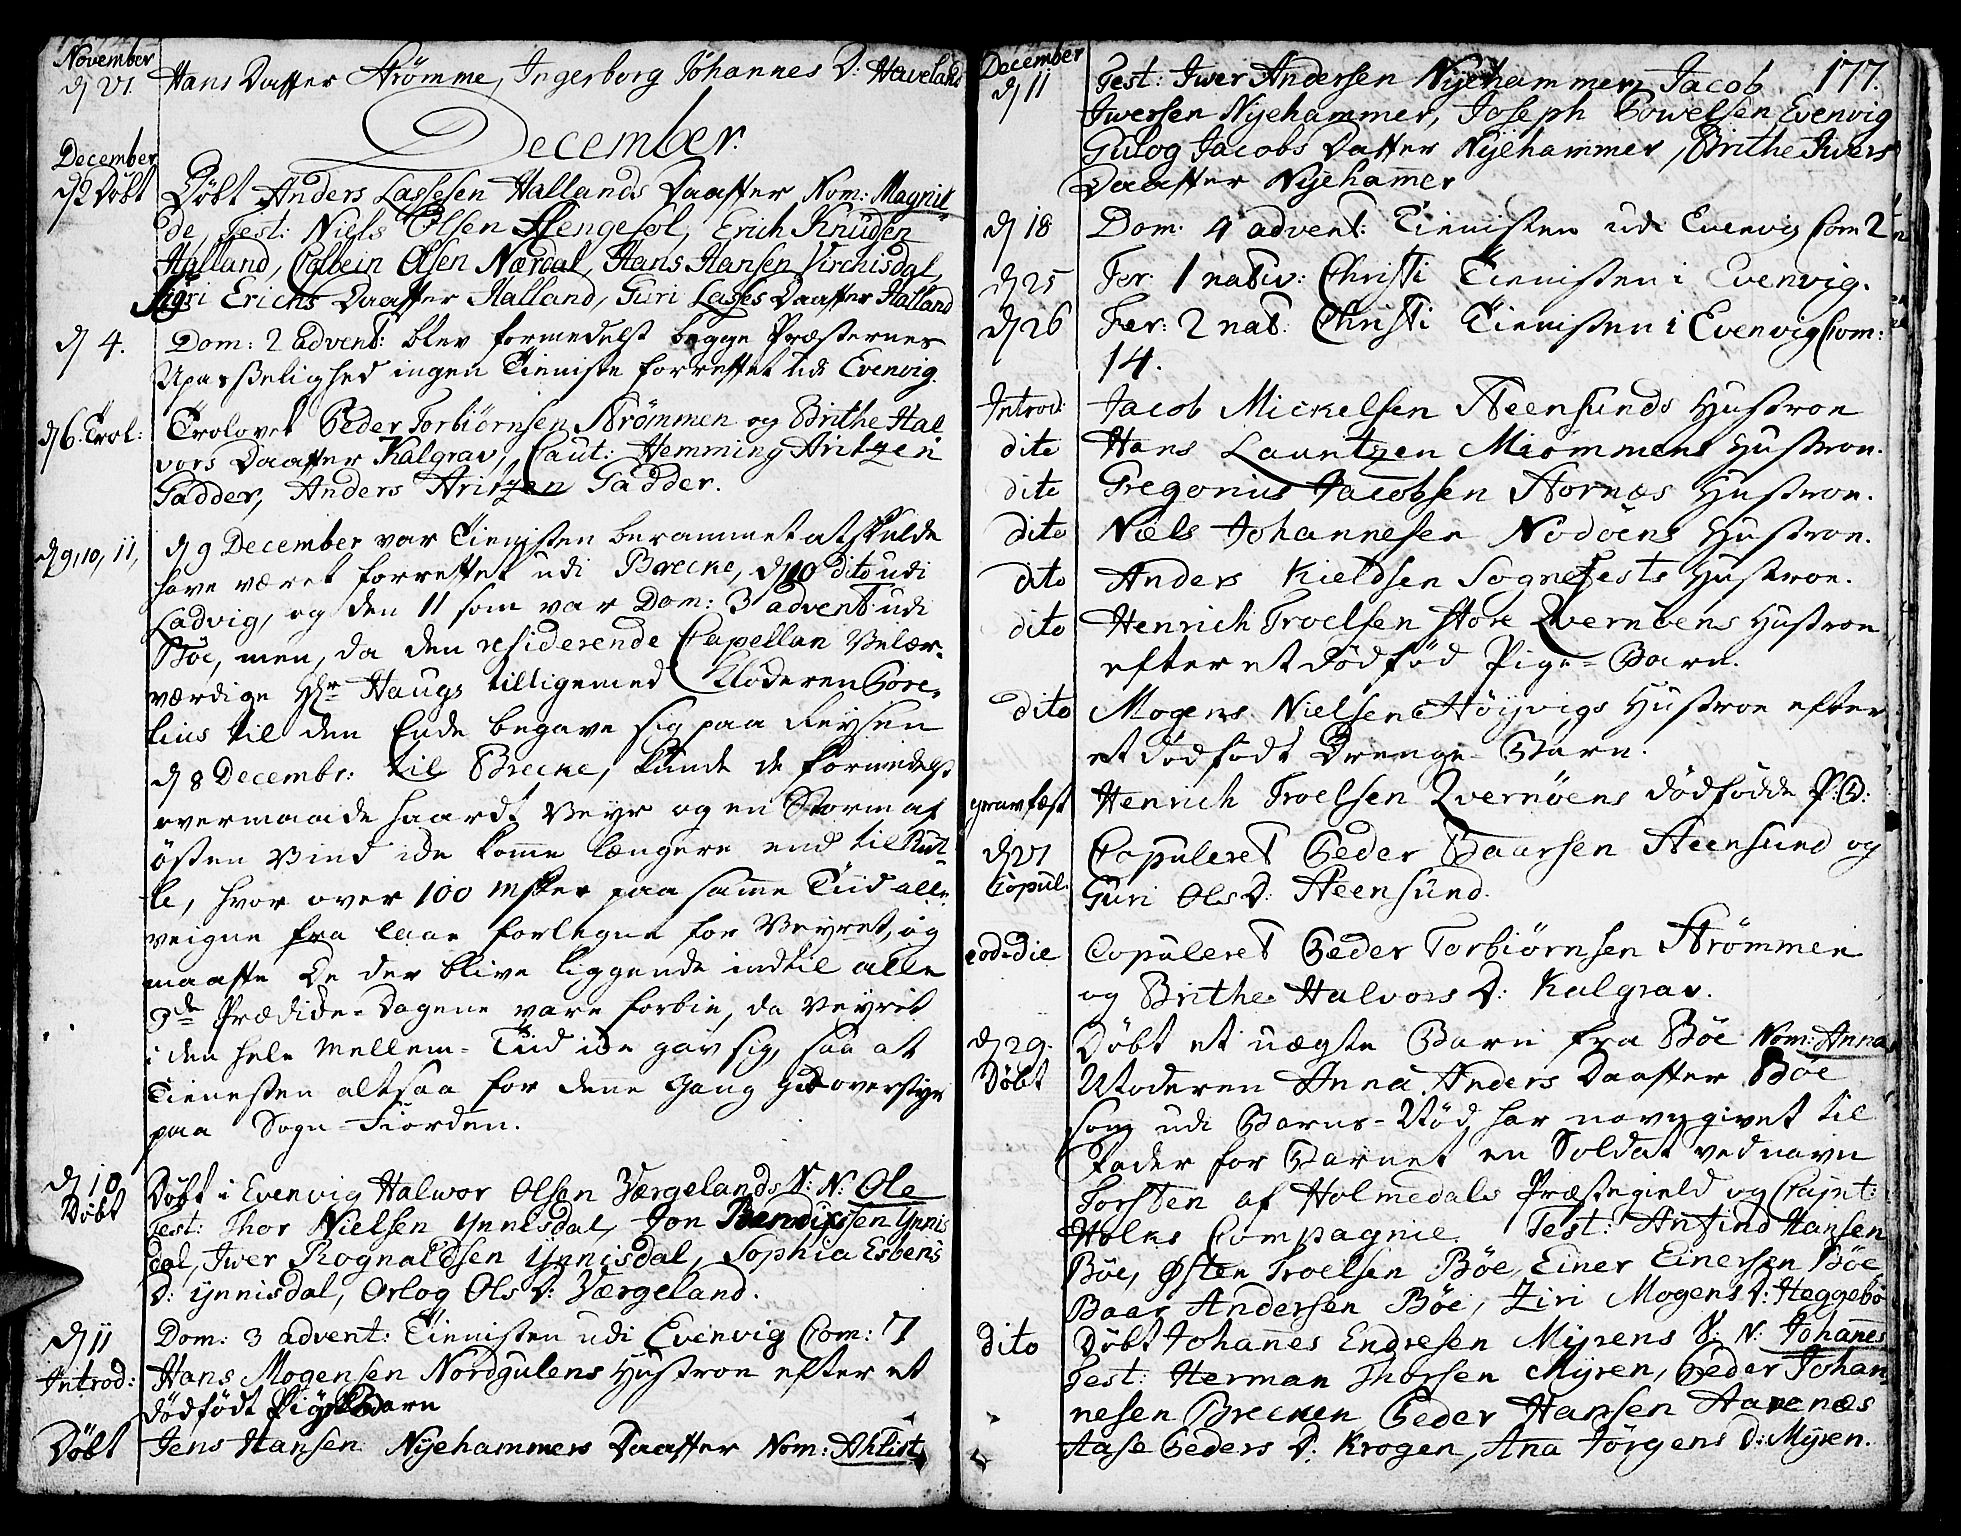 November
d 27 Hans Datter Strömme, Ingerborg Johannes D: Haveland
December.
December
d 2 Döbt Döbt Anders Lassesen Hallands Daatter Nom: Magnil
de, Test: Niels Olsen Stengesol, Erich Knudsen
Halland, Colbein Olsen Nærdal, Hans Hansen Virchisdal,
Sigri Erichs Daatter Halland, Guri Lasses Daatter Halland
d 4. Dom: 2 advent: blev formedelst begge Præsternes
Upasselighed ingen Tieniste forrettet udi Evenvig.
d 6. Trol: Trolovet Peder Torbiörnsen Strömmen og Brithe Hal
vors Daatter Kalgrav, Caut: Hemming Aritzen
Gadder, Anders Aritzen Gadder.
d 9, 10, 11, d 9 December var Tienisten berammet at skulde
have været forrettet udi Brecke, d 10 dito udi
Ladvig, og den 11 som var Dom: 3 advent udi
Böe, men, da den residerende Capellan Velær-
værdige Hr Haugs tilligemed Kloderen Gore-
lius til den Ende begave sig paa Reysen
d 8 Decembr: til Brecke, kunde de formedelst
overmaade haardt Veyr og en Storm af
östen Vind ide komme længere end til Rut-
le, hvor over 100 msker paa samme Tiid alle-
veigne fra laae forlegne for Veyret, og
maatte de der blive liggende indtil alle
3de Prædike-Dagene vare forbie, da Veyret
i den hele Mellem-Tiid ide gav sig, saa at
Tienesten altsaa for denne Gang gik overstyr
paa Sogne-Fiorden.
d 10 Döbt Döbt i Evenvig Halwor Olsen Værgelands S: N: Ole
Test: Thor Nielsen Ynnisdal, Jon Bendixsen Ynnis
dal, Iwer Rognaldsen Ynnisdal, Sophia Esbens
D: Ynnisdal, Orlog Ols D: Værgeland.
d 11 Dom: 3 advent: Tienisten udi Evenvig Com: 7
Introd: Hans Mogensen Nordgulens Hustroe efter et
dödfödt Pige Barn
Döbt Jens Hansen Nyehammers Daatter Nom: Ahlist
December
d 11 Test: Iwer Andersen Nyehammer, Jacob 177.
Iwersen Nyehammer, Joseph Powelsen Evenvig
Gulog Jacobs Datter Nyehammer, Brithe Ivers
Daatter Nyehamer
d 18 Dom: 4 advent: Tienisten udi Evenvig Com 2
d 25 Fer: 1 nativ: Christi Tienisten i Evenvig.
d 26 Fer: 2 nat: Christi Tienisten i Evenvig Com:
14.
Introd: Jacob Mickelsen Steensunds Hustroe
dito Hans Lauritzen Miömmens Hustroe.
dito Gregorius Jacobsen Hornæs Hustroe.
dito Niels Johannesen Nodöens Hustroe.
dito Anders Kieldsen Sognefests Hustroe.
dito Henrich Troelsen Store Qvernöens Hustroe
efter et dödfød Pige-Barn.
dito Mogens Nielsen Höyvigs Hustroe efter
et dödfödt Drenge-Barn.
gravfæst Henrich Troelsen Qvernöens dödfödde P: B:
d 27 Copul. Copuleret Peder Baarsen Steensund og
Guri Ols D: Steensund.
eod: die Copuleret Peder Torbiörnsen Strömmen
og Brithe Halvors D: Kalgrav.
d 29. Döbt et uægte Barn fra Böe Nom: Anna
Döbt Moderen Anna Anders Daatter Böe
som udi Barns-Nöd har navngivet til
Fader for Barnet en Soldat ved navn
Torsten af Holmedals Præstegield og Capnt:
Holes Compagnie. Test: Anfind Hansen
Böe, Østen Troelsen Böe, Einer Einersen Böe
Baar Andersen Böe, Ziri Mogens D: Heggebö
dito Döbt Johanes Endresen Myrens S: N: Johanes
Test: Herman Thorsen Myren, Peder Johan
nesen Brecken Peder Hansen Havenæs
Aase Peders D: Krogen, Ana Jörgens D: Myren.